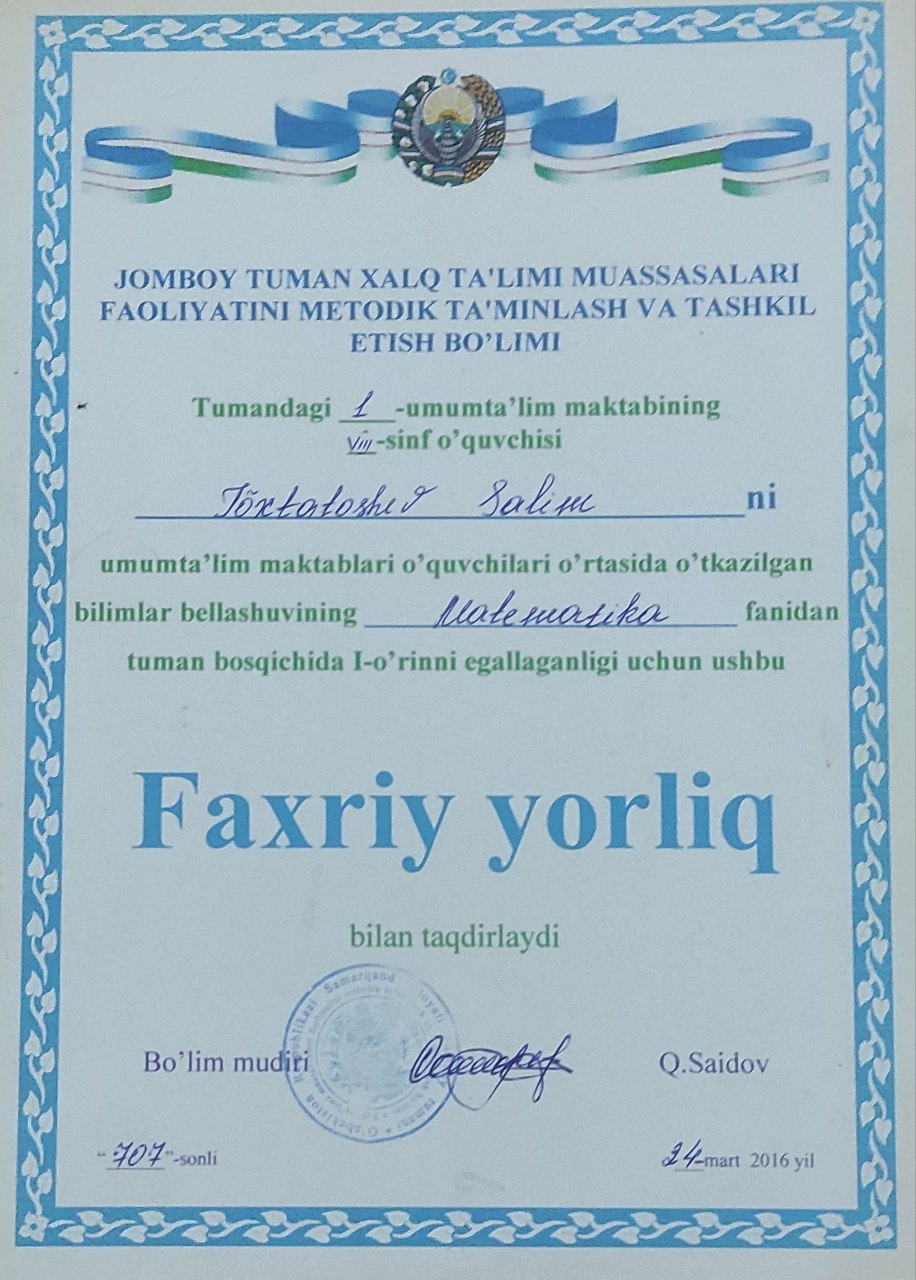 JOMBOY TUMAN XALQ TA'LIMI MUASSASALARI
FAOLIYATINI METODIK TA'MINLASH VA TASHKIL
ETISH BO’LIMI
Tumandagi 1 -umumta’lim maktabining
VIII-sinf o’quvchisi
Tõxtatoshev Salim ni
umumta’lim maktablari o’quvchilari o’rtasida o’tkazilgan
bilimlar bellashuvining Matematika fanidan
tuman bosqichida I-o’rinni egallaganligi uchun ushbu
Faxriy yorliq
bilan taqdirlaydi
Samarqand
Bo’lim mudiri Q.Saidov
“707”-sonli 24-mart 2016 yil